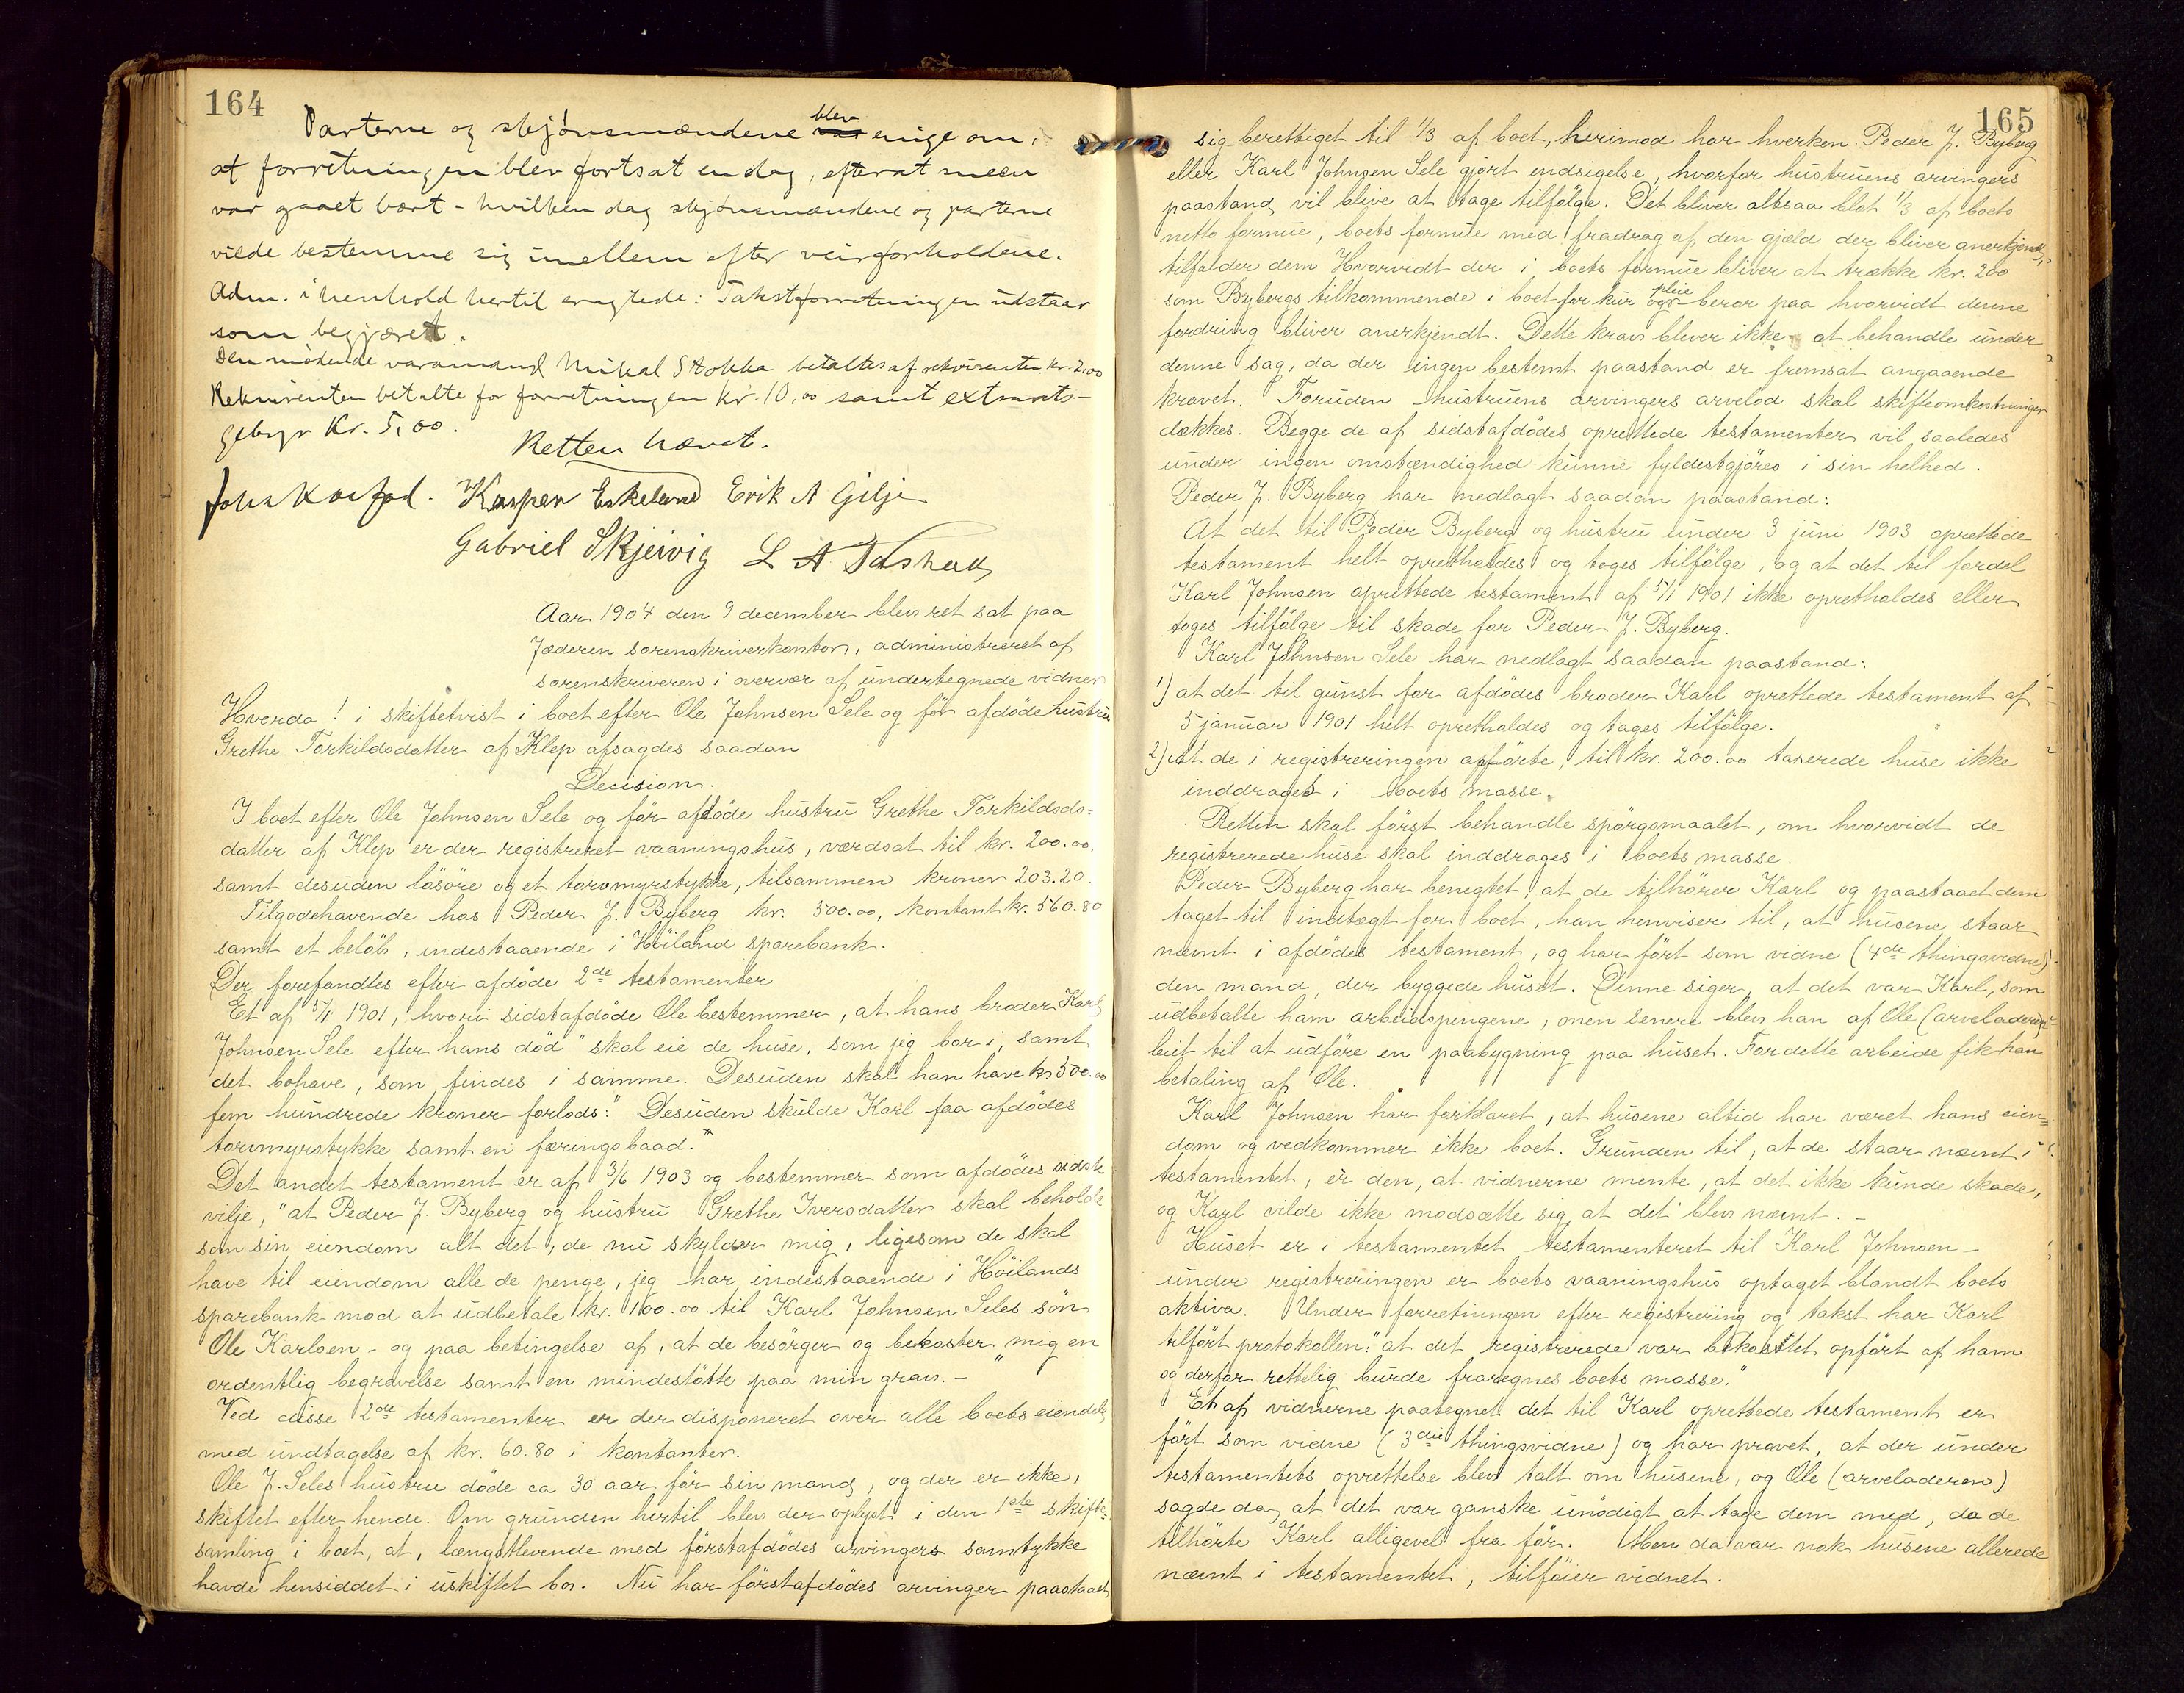 164
Parterne og skjønsmændene blev enige om,
at forretningen blev fortsat en dag, efterat sneen
var gaaet bort - hvilken dag skjønsmændene og parterne
vilde bestemme sig imellem efter veirforholdene.
Adm. i henhold hertil eragtede: Takstforretningen udstaar
som begjæret.
Den mødende varamand Mikal Stokka betaltes af rekvirenten kr. 2,00
Rekvirenten betalte for forretningen kr. 10,00 samt extrakts-
gebyr Kr. 5,00.
Retten hævet.
Kasper Eskeland Erik A Gilje
Gabriel Skjeivig L A
Aar 1904 den 9 december blev ret sat paa
Jæderen sorenskriverkontor, administreret af
sorenskriveren i overvær af undertegnede vidner
Hvorda! i skiftetvist i boet efter Ole Johnsen Sele og før afdøde hustru
Grethe Torkildsdatter af Klep afsagdes saadan
Decision.
I boet efter Ole Johnsen Sele og før afdøde hustru Grethe Torkildsds=
datter af Klep er der registreret vaaningshus, værdsat til kr. 200.00,
samt desuden løsøre og et torvmyrstykke, tilsammen kroner 203.20.
Tilgodehavende hos Peder J. Byberg kr. 500.00, kontant kr. 560.80
samt et beløb, indestaaende i Høiland sparebank.
Der forefandtes efter afdøde 2de testamenter
Et af 5/1 1901, hvori sidstafdøde Ole bestemmer, at hans broder Karl
Johnsen Sele efter hans død "skal eie de huse, som jeg bor i, samt
det bohave, som findes i samme. Desuden skal han have kr. 500.00
fem hundrede kroner forlods." Desuden skulde Karl faa afdødes
torvmyrstykke samt en færingsbaad."
Det andet testament er af 3/6 1903 og bestemmer som afdødes sidste
vilje, "at Peder J. Byberg og hustru Grethe Iversdatter skal beholde
som sin eiendom alt det, de nu skylder mig, ligesom de skal
have til eiendom alle de penge, jeg har indestaaende i Høilands
sparebank mod at udbetale kr. 100.00 til Karl Johnsen Seles søn
Ole Karlsen - og paa betingelse af, at de besørger og bekoster mig en
ordentlig begravelse samt en mindestøtte paa min grav. - "
Ved disse 2de testamenter er der disponeret over alle boets eiendele
med undtagelse af kr. 60.80 i kontanter.
Ole J. Seles hustru døde ca 30 aar før sin mand, og der er ikke,
skiftet efter hende. Om grunden hertil blev der oplyst i den 1ste skifte-
samling i boet, at, længstlevende med førstafdødes arvingers samtykke
havde hensiddet i uskiftet bo. Nu har førstafdødes arvinger paastaaet
165
sig berettiget til 1/3 af boet, herimod har hverken Peder J. Byberg
eller Karl Johnsen Sele gjort indsigelse, hvorfor hustruens arvingers
paastand vil blive at tage tilfølge. Det bliver altsaa blot 1/3 af boets
netto formue, boets formue med fradrag af den gjæld der bliver anerkjendt,
tilfalder dem Hvorvidt der i boets formue bliver at trække kr. 200
som Bybergs tilkommende i boet for kur og pleie beror paa hvorvidt denne
fordring bliver anerkjendt. Dette krav blever ikke at behandle under
denne sag, da der ingen bestemt paastand er fremsat angaaende
kravet. Foruden hustruens arvingers arvelod skal skifteomkostninger
dækkes. Begge de af sidstafdødes oprettede testamenter vil saaledes
under ingen omstændighed kunne fyldestgjøres i sin helhed.
Peder J. Byberg har nedlagt saadan paastand:
At det til Peder Byberg og hustru under 3 juni 1903 oprettede
testament helt opretholdes og tages tilfølge, og at det til fordel
Karl Johnsen oprettede testament af 5/1 1901 ikke opretholdes eller
tages tilfølge til skade for Peder J. Byberg.
Karl Johnsen Sele har nedlagt saadan paastand:
1) at det til gunst for afdødes broder Karl oprettede testament af
5 januar 1901 helt opretholdes og tages tilfølge.
2) At de i registreringen opførte, til kr. 200.00 taxerede huse ikke
inddrages i boets masse.
Retten skal først behandle spørgsmaalet, om hvorvidt de
registrerede huse skal inddrages i boets masse.
Peder Byberg har benegtet, at de tilhører Karl og paastaaet dem
taget til indtægt for boet, han henviser til, at husene staar
nævnt i afdødes testament, og har ført som vidne (4de thingsvidne)
den mand, der byggede huset. Denne siger, at det var Karl, som
udbetalte ham arbeidspengene, men senere blev han af Ole (arveladeren)
leiet til at udføre en paabygning paa huset. For dette arbeide fik han
betaling af Ole.
Karl Johnsen har forklaret, at husene altid har været hans eien=
dom og vedkommer ikke boet. Grunden til, at de staar nævnt i
testamentet, er den, at vidnerne mente, at det ikke kunde skade,
og Karl vilde ikke modsætte sig, at det blev nævnt. -
Huset er i testamentet testamenteret til Karl Johnsen -
under registreringen er boets vaaningshus optaget blandt boets
aktiva. Under forretningen efter registrering og takst har Karl
tilført protokollen: "at det registrerede var bekostet opført af ham
og derfor rettelig burde fraregnes boets masse."
Et af vidnerne paategnet det til Karl oprettede testament er
ført som vidne (3die thingsvidne) og har prøvet, at der under
testamentets oprettelse blev talt om husene, og Ole (arveladeren)
sagde da, at det var ganske unødigt at tage dem med, da de
tilhørte Karl alligevel fra før. Men da var nok husene allerede
nævnt i testamentet, tilføier vidnet.